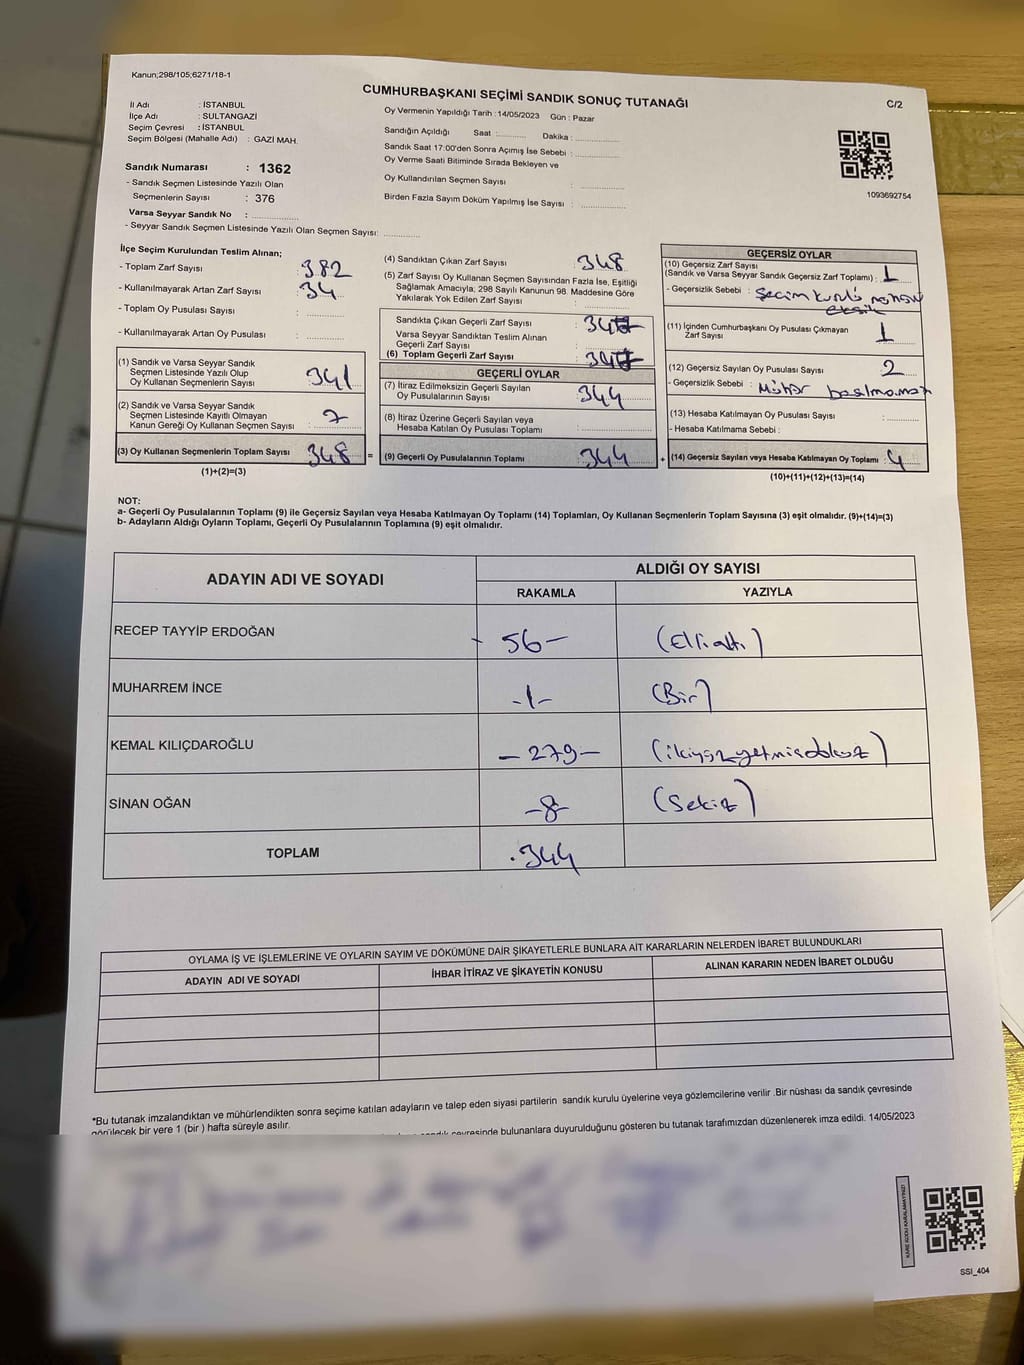 Kanun;298/105;6271/18-1
CUMHURBAŞKANI SEÇİMİ SANDIK SONUÇ TUTANAĞI
C/2
İl Adı : İSTANBUL
İlçe Adı : SULTANGAZİ
Seçim Çevresi : İSTANBUL
Seçim Bölgesi (Mahalle Adı) : GAZİ MAH.
Sandık Numarası : 1362
- Sandık Seçmen Listesinde Yazılı Olan
Seçmenlerin Sayısı : 376
Varsa Seyyar Sandık No :
- Seyyar Sandık Seçmen Listesinde Yazılı Olan Seçmen Sayısı:
Oy Vermenin Yapıldığı Tarih : 14/05/2023 Gün : Pazar
Sandığın Açıldığı Saat : Dakika :
Sandık Saat 17:00'den Sonra Açımış İse Sebebi :
Oy Verme Saati Bitiminde Sırada Bekleyen ve
Oy Kullandırılan Seçmen Sayısı :
Birden Fazla Sayım Döküm Yapılmış İse Sayısı :
1093692754
İlçe Seçim Kurulundan Teslim Alınan;
- Toplam Zarf Sayısı : 382
- Kullanılmayarak Artan Zarf Sayısı : 34
- Toplam Oy Pusulası Sayısı :
- Kullanılmayarak Artan Oy Pusulası :
(1) Sandık ve Varsa Seyyar Sandık
Seçmen Listesinde Yazılı Olup
Oy Kullanan Seçmenlerin Sayısı : 341
(2) Sandık ve Varsa Seyyar Sandık
Seçmen Listesinde Kayıtlı Olmayan
Kanun Gereği Oy Kullanan Seçmen Sayısı : 7
(3) Oy Kullanan Seçmenlerin Toplam Sayısı : 348 =
(1)+(2)=(3)
(4) Sandıktan Çıkan Zarf Sayısı : 348
(5) Zarf Sayısı Oy Kullanan Seçmen Sayısından Fazla İse, Eşitliği
Sağlamak Amacıyla; 298 Sayılı Kanunun 98. Maddesine Göre
Yakılarak Yok Edilen Zarf Sayısı :
Sandıkta Çıkan Geçerli Zarf Sayısı :
Varsa Seyyar Sandıktan Teslim Alınan
Geçerli Zarf Sayısı :
(6) Toplam Geçerli Zarf Sayısı :
GEÇERLİ OYLAR
(7) İtiraz Edilmeksizin Geçerli Sayılan
Oy Pusulalarının Sayısı : 344
(8) İtiraz Üzerine Geçerli Sayılan veya
Hesaba Katılan Oy Pusulası Toplamı :
(9) Geçerli Oy Pusulalarının Toplamı : 344 +
GEÇERSİZ OYLAR
(10) Geçersiz Zarf Sayısı
(Sandık ve Varsa Seyyar Sandık Geçersiz Zarf Toplamı) : 1
- Geçersizlik Sebebi : Seçim kurulu
eksik
(11) İçinden Cumhurbaşkanı Oy Pusulası Çıkmayan
Zarf Sayısı : 1
(12) Geçersiz Sayılan Oy Pusulası Sayısı : 2
- Geçersizlik Sebebi : Mühür basılmamış
(13) Hesaba Katılmayan Oy Pusulası Sayısı :
- Hesaba Katılmama Sebebi :
(14) Geçersiz Sayılan veya Hesaba Katılmayan Oy Toplamı : 4
(10)+(11)+(12)+(13)=(14)
NOT:
a- Geçerli Oy Pusulalarının Toplamı (9) ile Geçersiz Sayılan veya Hesaba Katılmayan Oy Toplamı (14) Toplamları, Oy Kullanan Seçmenlerin Toplam Sayısına (3) eşit olmalıdır. (9)+(14)=(3)
b- Adayların Aldığı Oyların Toplamı, Geçerli Oy Pusulalarının Toplamına (9) eşit olmalıdır.
ADAYIN ADI VE SOYADI
ALDIĞI OY SAYISI
RAKAMLA YAZIYLA
RECEP TAYYİP ERDOĞAN - 56 - (Elli altı)
MUHARREM İNCE -1- (Bir)
KEMAL KILIÇDAROĞLU - 279 - (ikiyüzyetmişdokuz)
SİNAN OĞAN -8- (Sekiz)
TOPLAM .344
OYLAMA İŞ VE İŞLEMLERİNE VE OYLARIN SAYIM VE DÖKÜMÜNE DAİR ŞİKAYETLERLE BUNLARA AİT KARARLARIN NELERDEN İBARET BULUNDUKLARI
ADAYIN ADI VE SOYADI İHBAR İTİRAZ VE ŞİKAYETİN KONUSU ALINAN KARARIN NEDEN İBARET OLDUĞU
*Bu tutanak imzalandıktan ve mühürlendikten sonra seçime katılan adayların ve talep eden siyasi partilerin sandık kurulu üyelerine veya gözlemcilerine verilir .Bir nüshası da sandık çevresinde
görülecek bir yere 1 (bir ) hafta süreyle asılır.
çevresinde bulunanlara duyurulduğunu gösteren bu tutanak tarafımızdan düzenlenerek imza edildi. 14/05/2023
KARE KODU KARALAMAYINIZ!
SSI_404